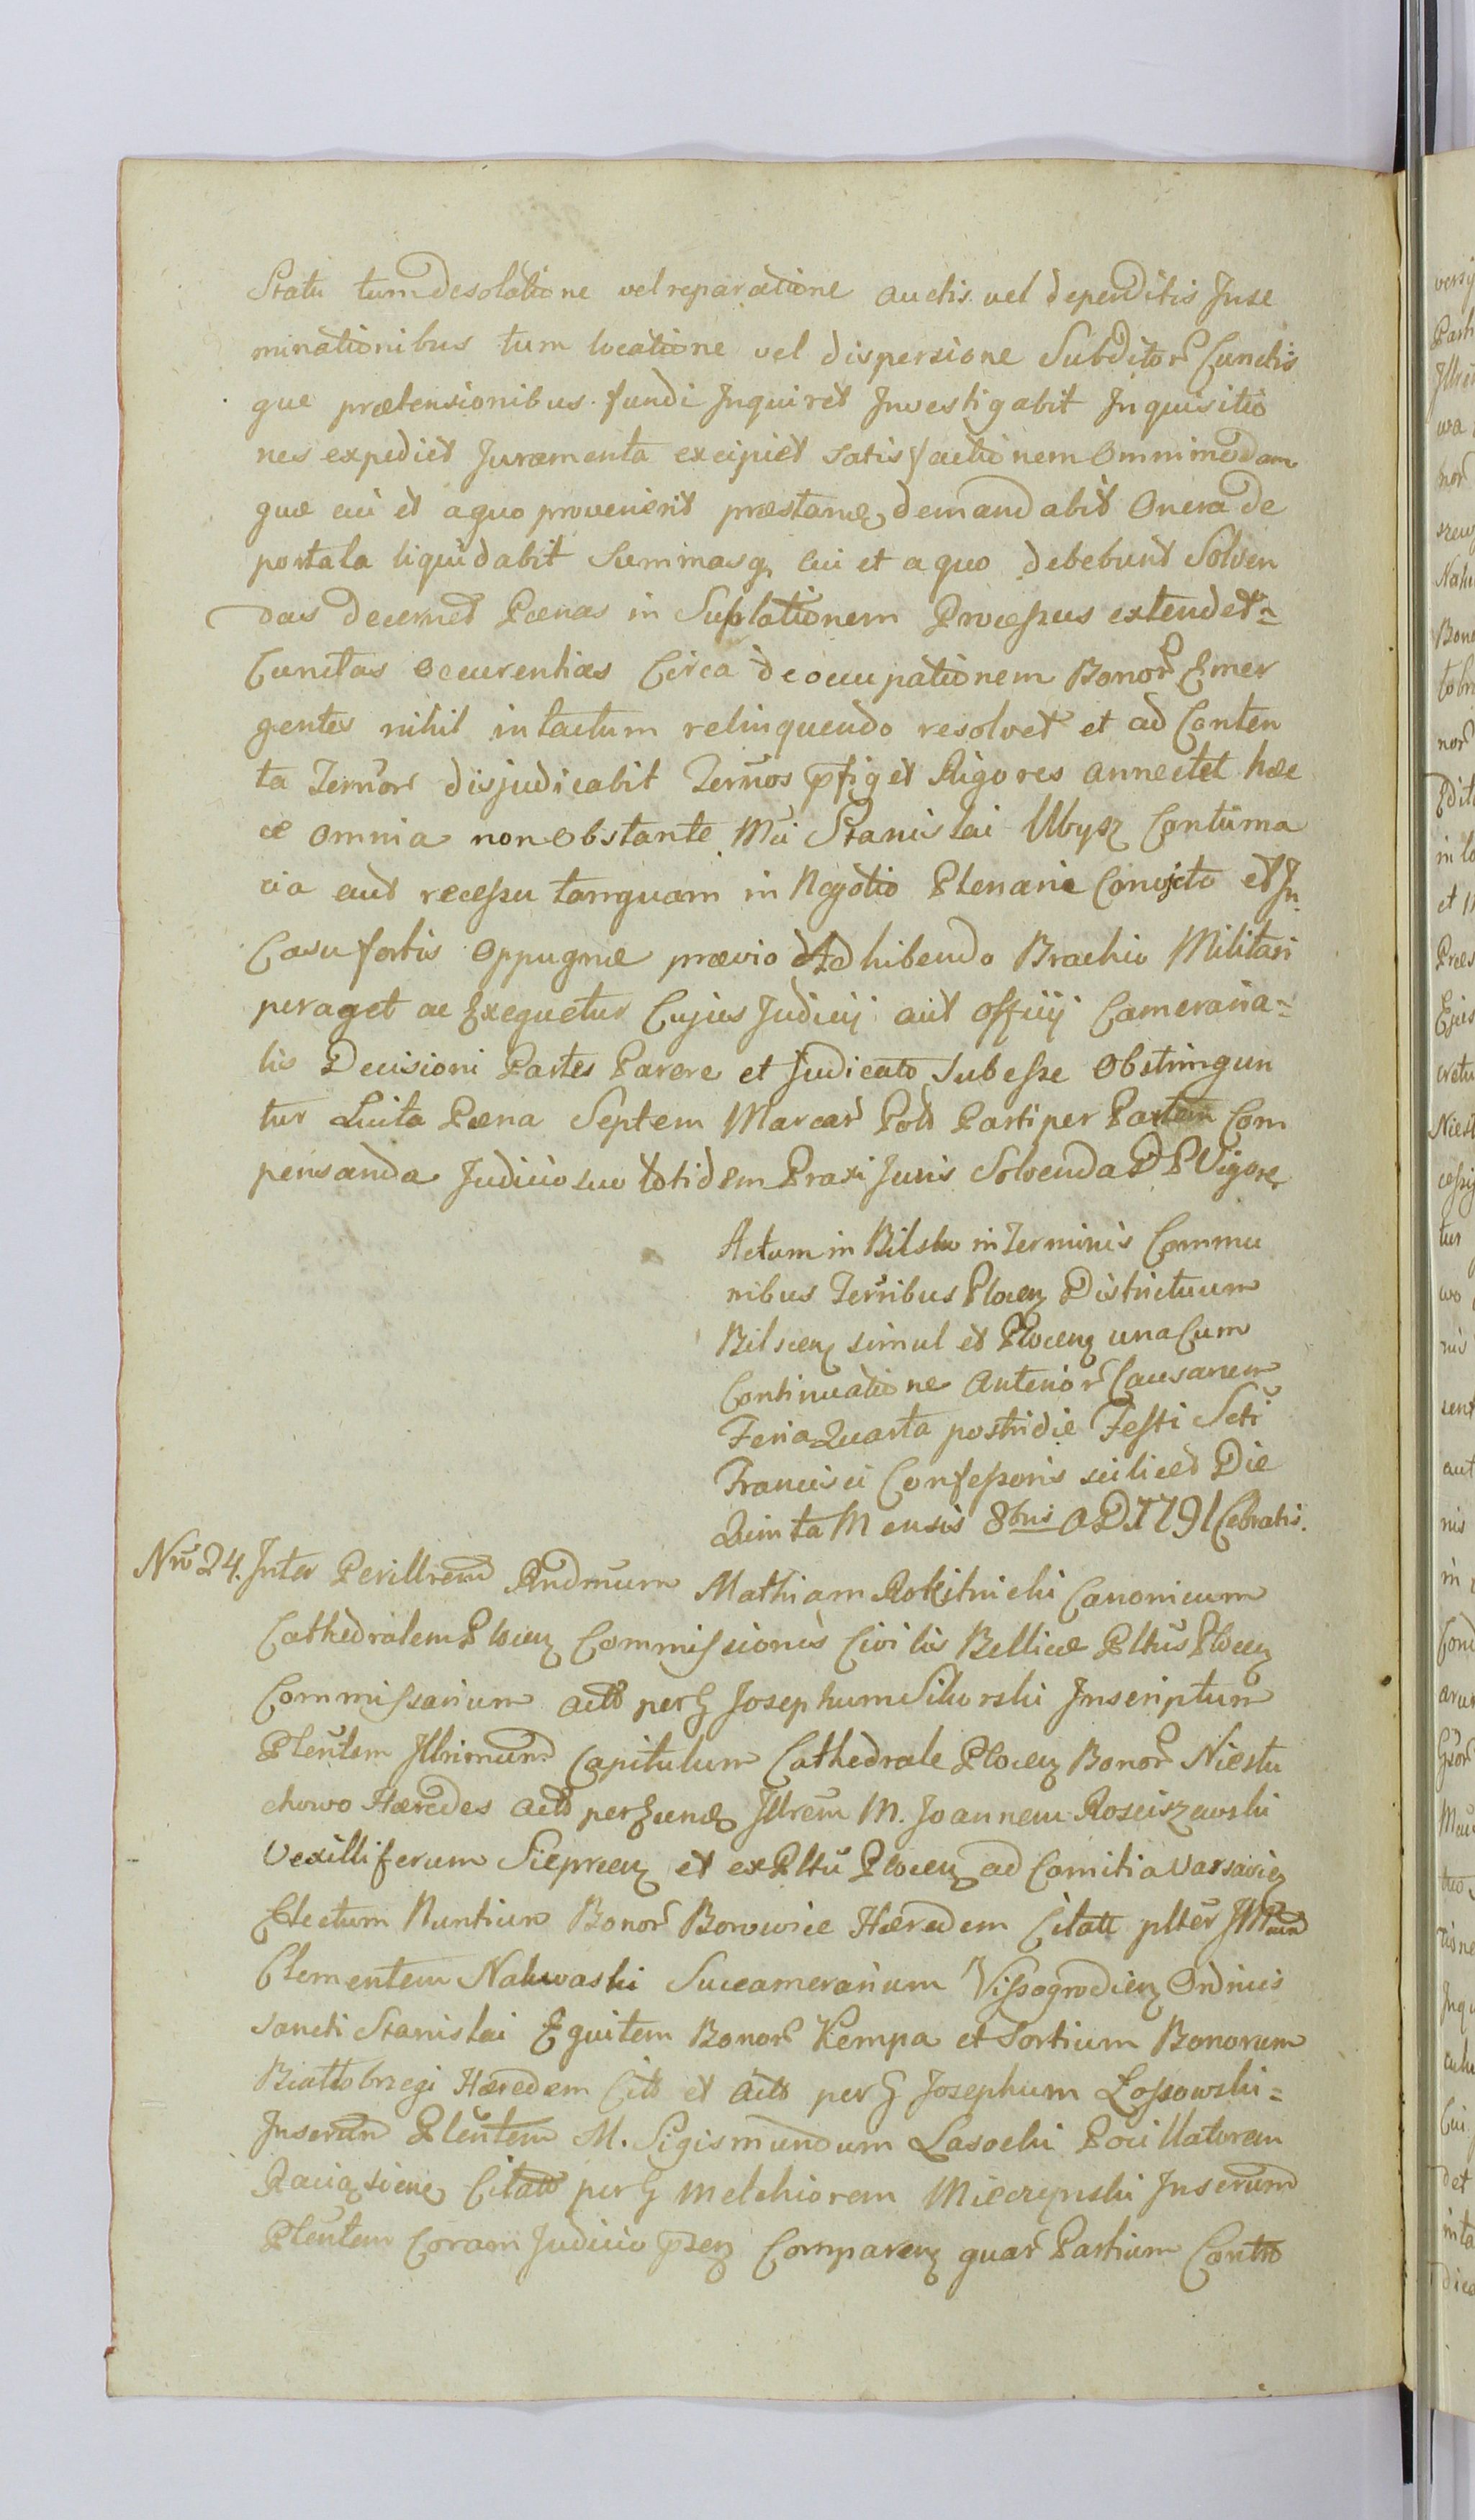 Statu tum desolatione vel reparatione auctis vel deperditis Inse
minationibus tum locatione vel dispersione Subditor Cunctis
que prætensionibus fundi Inquiret Investigabit Inquisitio
nes expediet Juramenta excipiet satisfactionem Ommimodam
quæ cui et a quo provenerit præstand demandabit Onera de
portata liquidabit Summasq cui et a quo debebunt Solven
das decernet Pœnas in Sublationem Processus extendet=
Cunctas occurentias Circa deoccupationem Bonor Emer
gentes nihil intactum relinquendo resolvet et ad Conten
ta Ternor disjudicabit Ternos pfiget Rigores annectet hæc
ce omnia non obstante Mci Stanislai Ubysz Contuma
cia aut recessu tamquam in Negotio Plenarie Convicto et In
Casu fortis oppugnæ prævio Adhibendo Brachio Militari
peraget ac Exequetur Cujus Judicij aut Officij Cameraria=
lis Decisioni Partes Parere et Judicato Subesse Obstringun
tur Luita Pœna Septem Marcar Pold Parti per Partem Com
pensanda Judicio suo totidem Praxi Juris Solvenda D P Vigore
Actum in Bilsko in Terminis Commu
nibus Terribus Plocen Districtuum
Bilscen simul et Plocen una Cum
Continuatione Anterior Causarum
Feria Quarta postridie Festi Scti
Francisci Confessoris scilicet Die
Quinta Mensis 8bris A D 1791 Cebratis.
Nro 24. Inter Perillrem Rndmum Mathiam Rokitnicki Canonicum
Cathedralem Plocen Commissionis Civilis Bellicæ Pltus Plocen
Commissarium actt per G Josephum Sikorski Inscriptum
Pltentem Illrimum Capitulum Cathedrale Plocen Bonor Niestu
chowo Hæredes actt per Illrem M. Joannem Rosciszewski
Vexilliferum Sieprcen et ex Pltu Plocen ad Comitia Varsavien
Electum Nuntium Bonor Borowice Hæredem Citatt plter
Clementem Nakwaski Succamerarium Vissogrodien Ordinis
Sancti Stanislai Equitem Bonor Kempa et Sortium Bonorum
Białobrzegi Hæredem Citt et actt per G Josephum Lossowski=
Inserum Pltentem M. Sigismundum Lasocki Pocillatorem
Raciązienen Citatt per G Melchiorem Mieczynski Inserum
Pltentem Coram Judicio psen Comparen quar Partium Contro